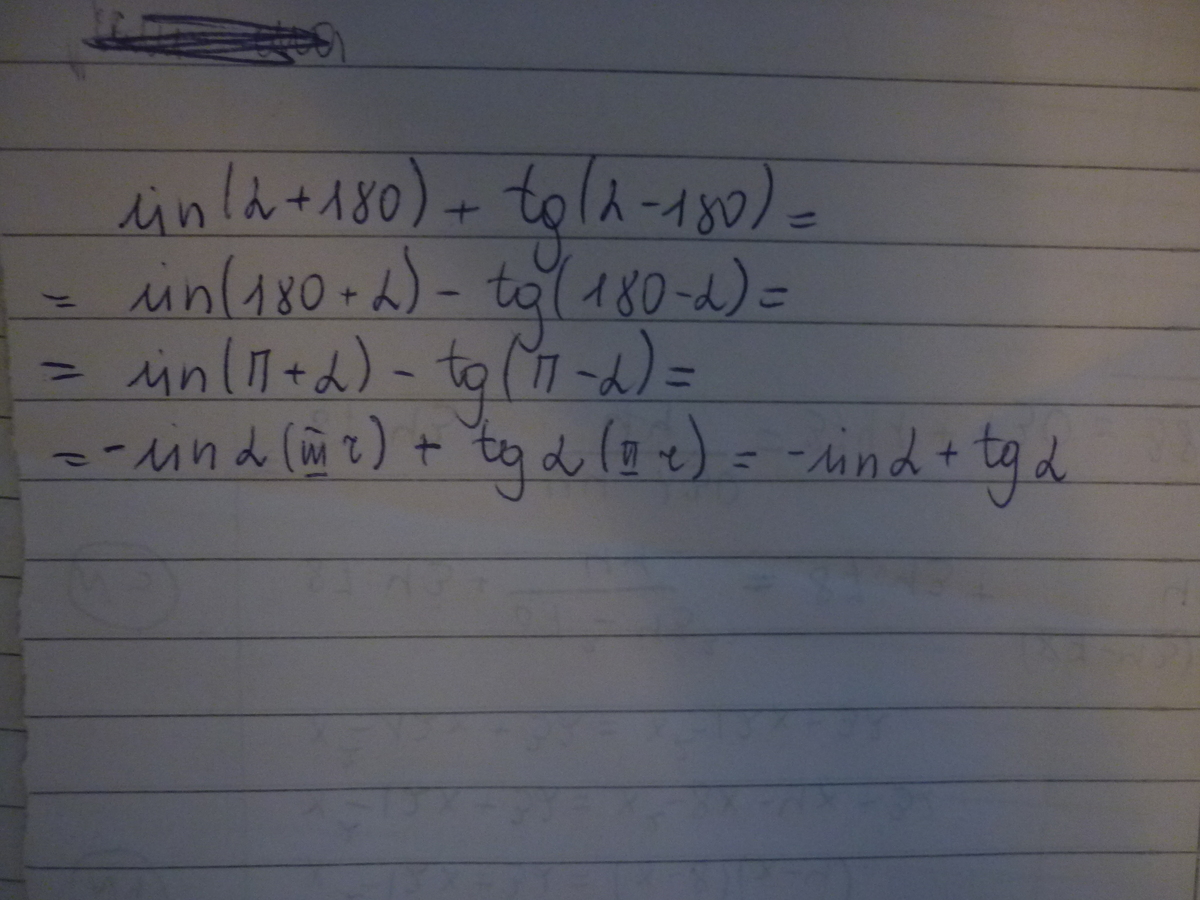 sin(α+180) + tg(α-180) =
= sin(180+α) - tg(180-α) =
= sin(π+α) - tg(π-α) =
= -sin α (III г) + tg α (II г) = -sin α + tg α